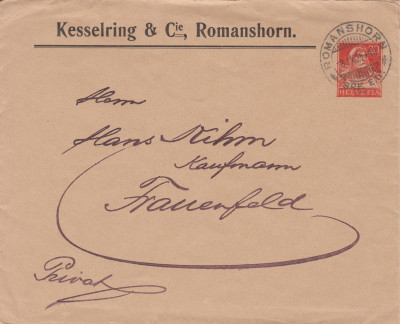 Kesselring & Cie, Romanshorn.
ROMANSHORN
HELVETIA
Herrn
Hans Kihm
Kaufmann
Frauenfeld
Privat